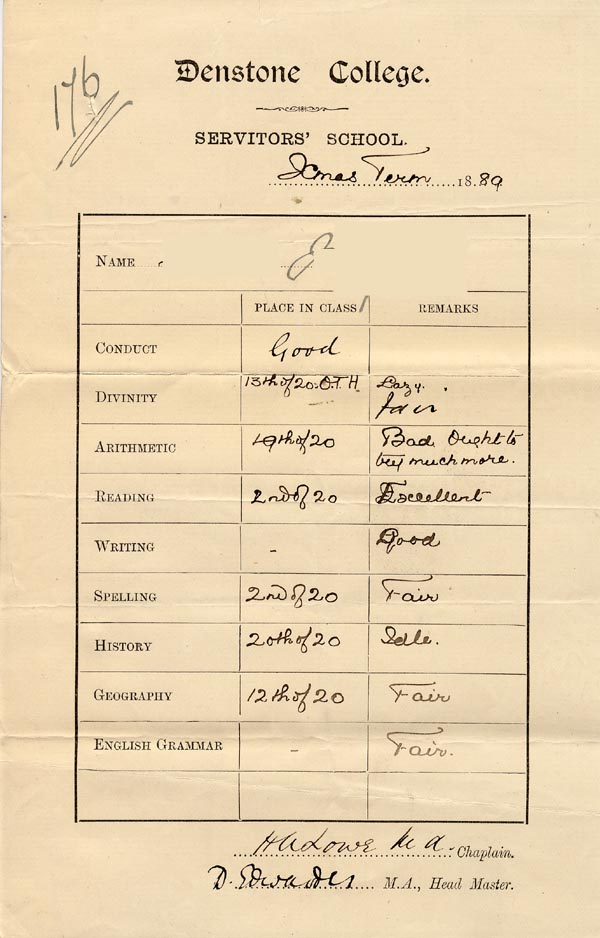 176
Denstone College.
SERVITORS' SCHOOL.
Xmas Term 1889
NAME
PLACE IN CLASS REMARKS
CONDUCT Good
DIVINITY 13th of 20. O.T.H. Lazy.
fair
ARITHMETIC 19th of 20 Bad. Ought to
try much more.
READING 2nd of 20 Excellent
WRITING - Good
SPELLING 2nd of 20 Fair
HISTORY 20th of 20 Idle.
GEOGRAPHY 12th of 20 Fair
ENGLISH GRAMMAR - Fair.
Lowe M A. Chaplain.
D. Edwardes M.A., Head Master.